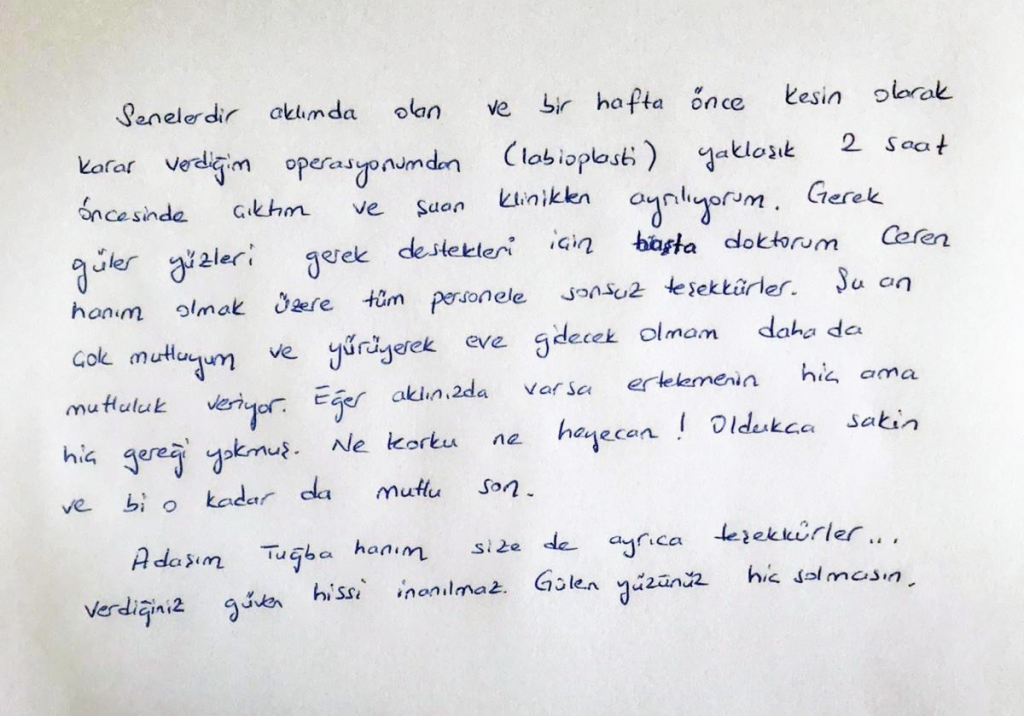 Senelerdir aklımda olan ve bir hafta önce kesin olarak
karar verdiğim operasyonumdan (labioplasti) yaklaşık 2 saat
öncesinde çıktım ve şuan klinikten ayrılıyorum. Gerek
güler yüzleri gerek destekleri için başta doktorum Ceren
hanım olmak üzere tüm personele sonsuz teşekkürler. Şu an
çok mutluyum ve yürüyerek eve gidecek olmam daha da
mutluluk veriyor. Eğer aklınızda varsa ertelemenin hiç ama
hiç gereği yokmuş. Ne korku ne heyecan! Oldukça sakin
ve bi o kadar da mutlu son.
Adaşım Tuğba hanım size de ayrıca teşekkürler...
Verdiğiniz güven hissi inanılmaz. Gülen yüzünüz hiç solmasın.